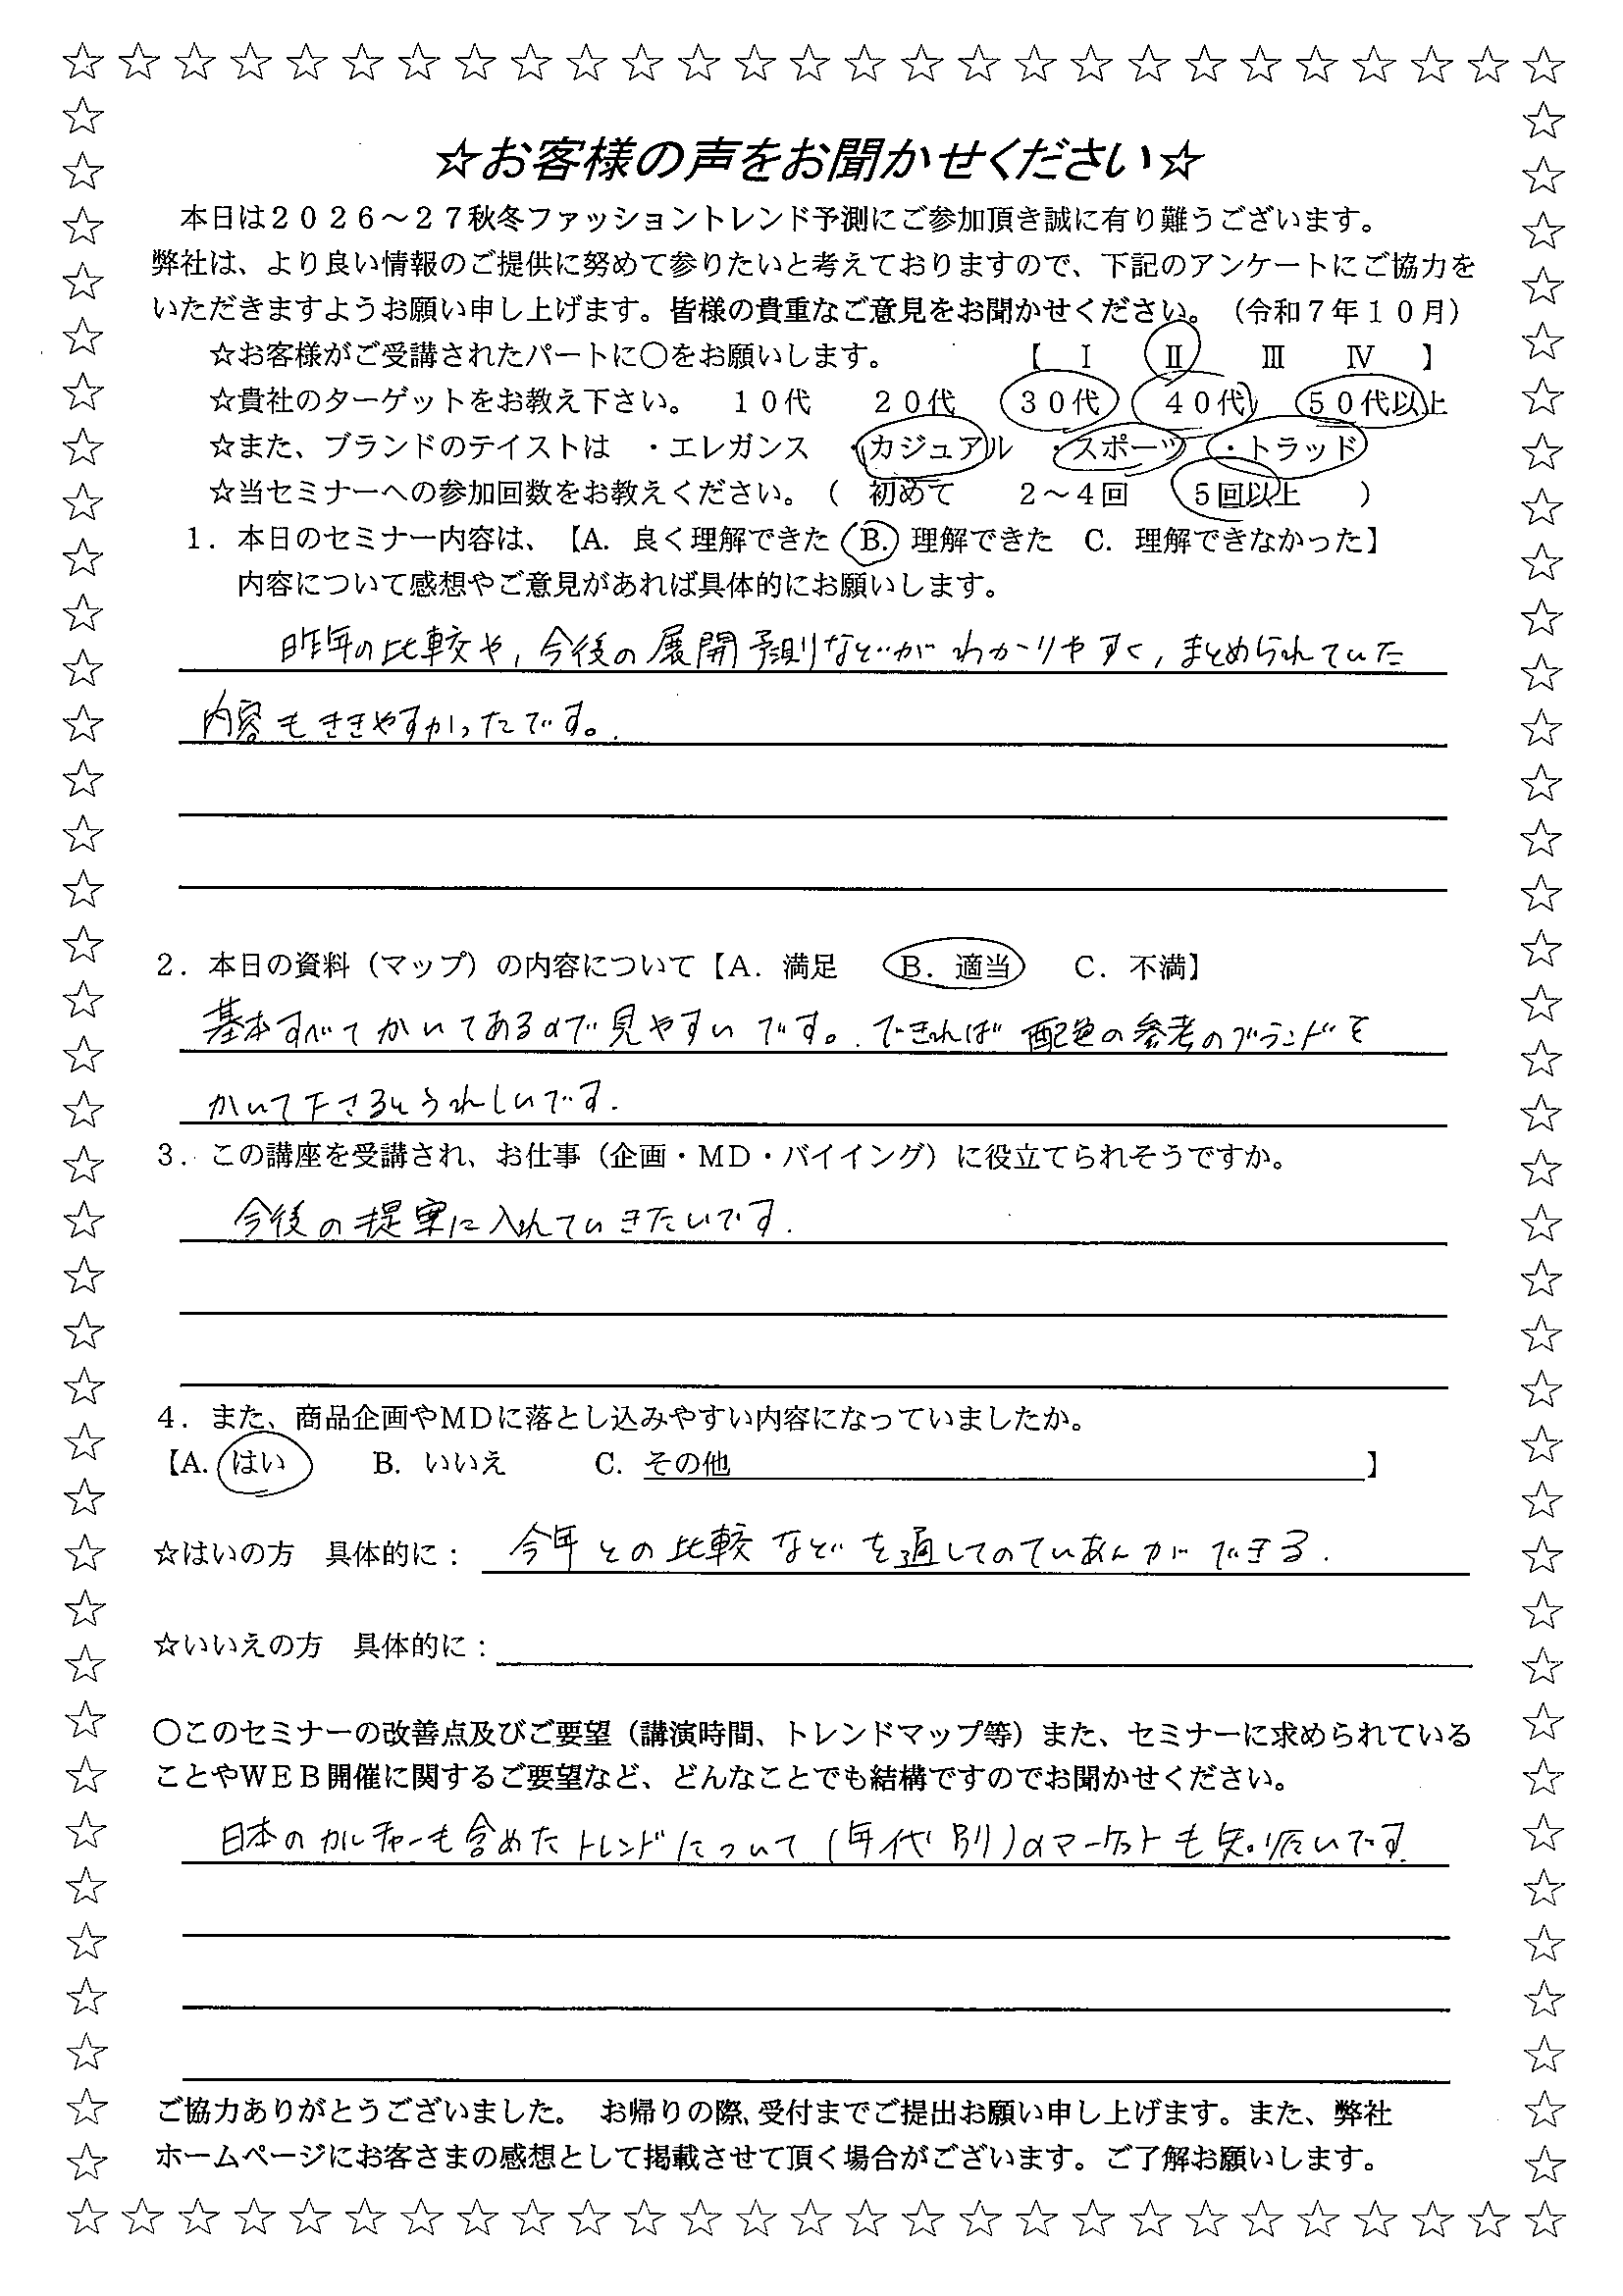 ☆お客様の声をお聞かせください☆
本日は２０２６～２７秋冬ファッショントレンド予測にご参加頂き誠に有り難うございます。
弊社は、より良い情報のご提供に努めて参りたいと考えておりますので、下記のアンケートにご協力を
いただきますようお願い申し上げます。皆様の貴重なご意見をお聞かせください。（令和７年１０月）
☆お客様がご受講されたパートに○をお願いします。　【　Ⅰ　Ⅱ　Ⅲ　Ⅳ　】
☆貴社のターゲットをお教え下さい。　１０代　２０代　３０代　４０代　５０代以上
☆また、ブランドのテイストは　・エレガンス　・カジュアル　・スポーツ　・トラッド
☆当セミナーへの参加回数をお教えください。（　初めて　２～４回　５回以上　）
１．本日のセミナー内容は、【A. 良く理解できた　B. 理解できた　C. 理解できなかった】
内容について感想やご意見があれば具体的にお願いします。
昨年の比較や, 今後の展開予測などがわかりやすく, まとめられていた
内容もききやすかったです。
２．本日の資料（マップ）の内容について【A．満足　B．適当　C．不満】
基本すべてかいてあるので見やすいです。できれば配色の参考のブランドを
かいて下さるとうれしいです.
３．この講座を受講され、お仕事（企画・ＭＤ・バイイング）に役立てられそうですか。
今後の提案に入れていきたいです.
４．また、商品企画やMDに落とし込みやすい内容になっていましたか。
【A. はい　B. いいえ　C. その他　】
☆はいの方　具体的に： 今年との比較などを通してのていあんができる.
☆いいえの方　具体的に：
○このセミナーの改善点及びご要望（講演時間、トレンドマップ等）また、セミナーに求められている
ことやＷＥＢ開催に関するご要望など、どんなことでも結構ですのでお聞かせください。
日本のカルチャーも含めたトレンドについて (年代別)のマーケットも知り広いです.
ご協力ありがとうございました。　お帰りの際、受付までご提出お願い申し上げます。また、弊社
ホームページにお客さまの感想として掲載させて頂く場合がございます。ご了解お願いします。